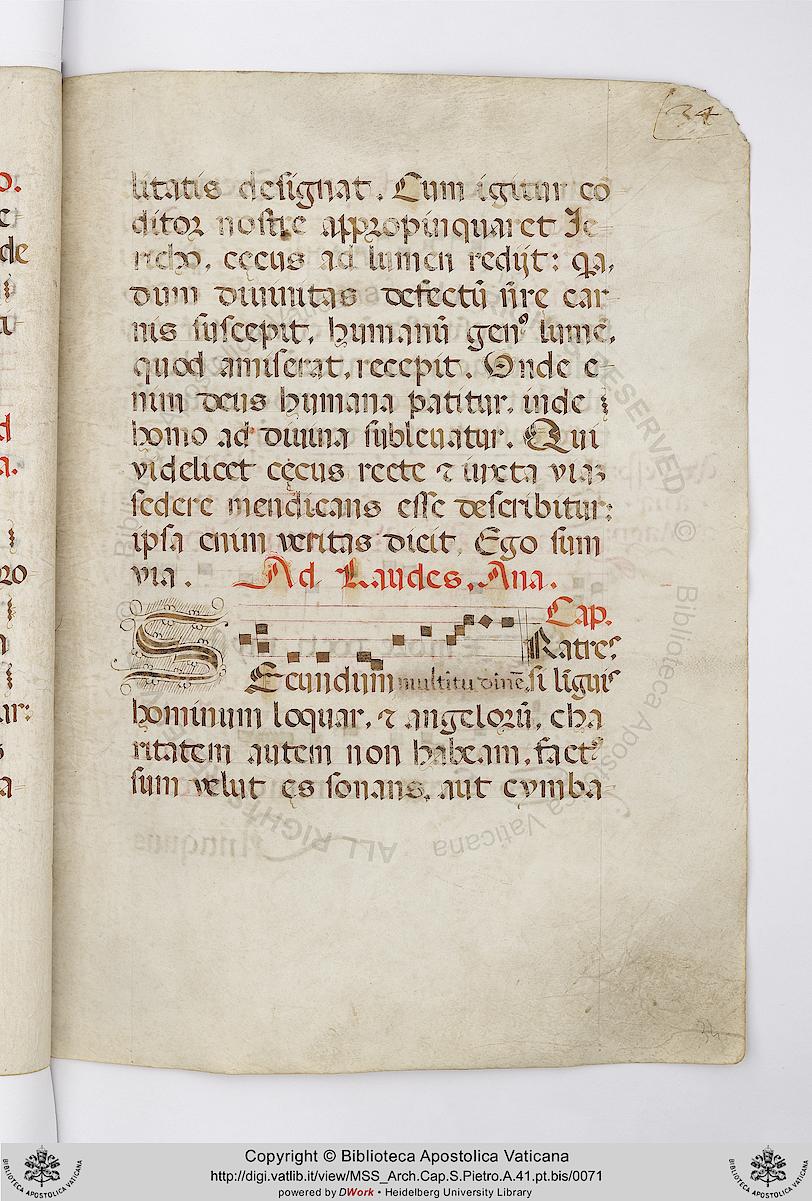 34
litatis designat. Cum igitur cō
ditor noster appropinquaret Je-
richo, cęcus ad lumen redijt: qa,
dum diuinitas defectū nr̄e car-
nis suscepit, humanū genꝰ lumē,
quod amiserat, recepit. Vnde e-
nim deus humana patitur, inde
homo ad diuina subleuatur. Qui
videlicet cęcus recte ⁊ iuxta viaʒ
sedere mendicans esse describitur:
ipsa enim veritas dicit, Ego sum
via. Ad Laudes. Ana.
Cap.
S Ratres
Ecundum multitudinē si liguis
hominum loquar, ⁊ angelorū, cha
ritatem autem non habeam, factꝰ
sum velut ęs sonans, aut cymba-
Copyright © Biblioteca Apostolica Vaticana
http://digi.vatlib.it/view/MSS_Arch.Cap.S.Pietro.A.41.pt.bis/0071
powered by DWork • Heidelberg University Library